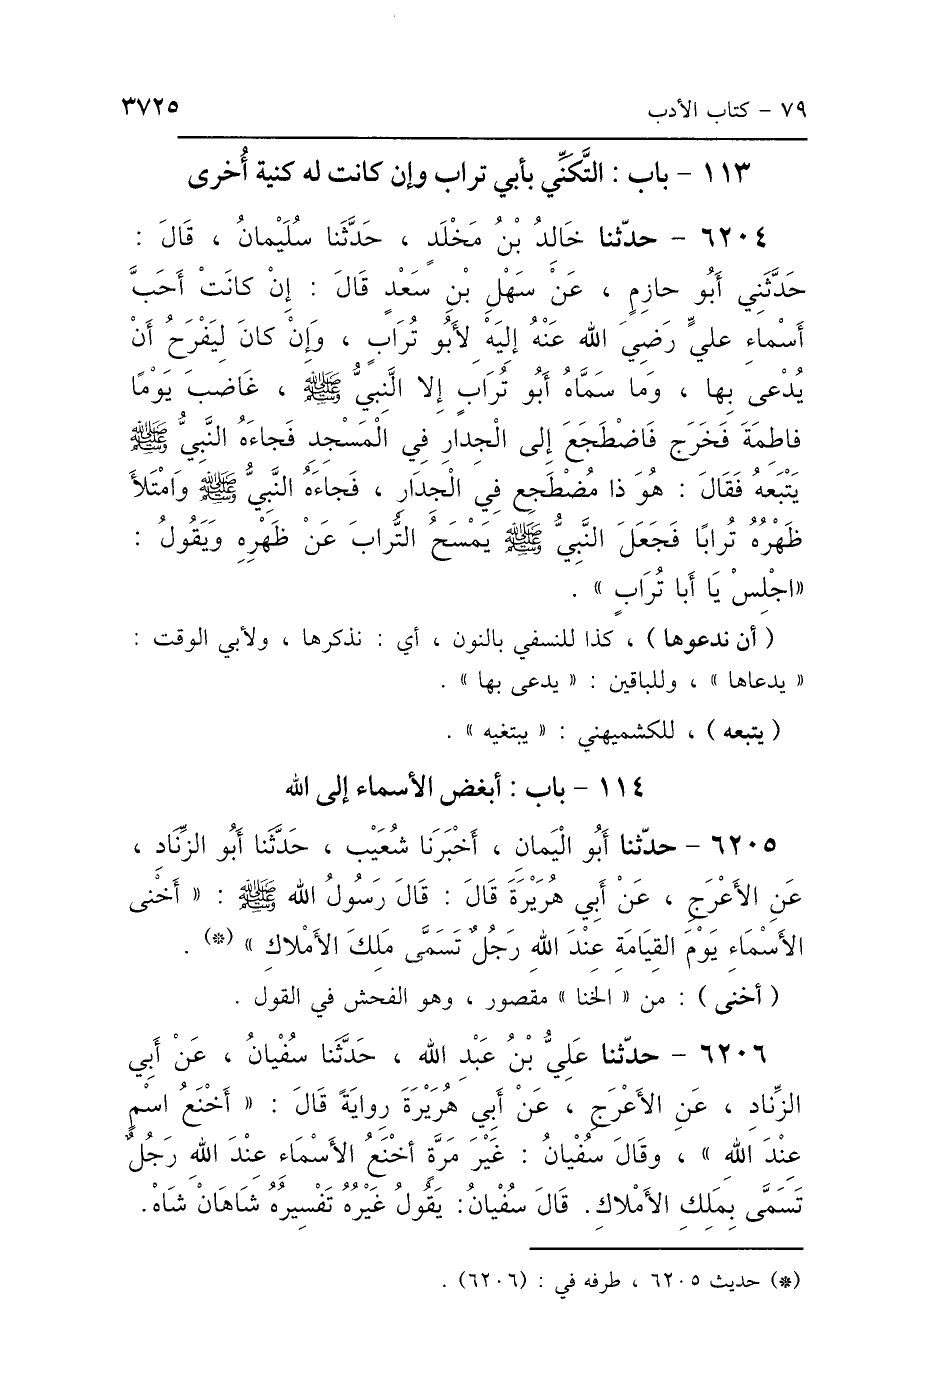 ٧٩ - كتاب الأدب ٣٧٢٥
١١٣ - باب : التَّكَنِّي بأبي تراب وإن كانت له كنية أُخرى
٦٢٠٤ - حدّثنا خَالدُ بْنُ مَخْلَدٍ ، حَدَّثَنا سُلَيْمانُ ، قَالَ :
حَدَّثَنِي أَبُو حازِمٍ ، عَنْ سَهْلِ بْنِ سَعْدٍ قَالَ : إِنْ كانَتْ أَحَبَّ
أَسْماءِ عليٍّ رَضِيَ الله عَنْهُ إِلَيْهِ لأَبُو تُرَابٍ ، وَإِنْ كانَ لَيَفْرَحُ أَنْ
يُدْعى بِها ، وَما سَمَّاهُ أَبُو تُرَابٍ إلا الَّنبيُّ ﷺ ، غَاضبَ يَوْمًا
فاطِمَةَ فَخَرَج فَاضْطَجَعَ إلى الْجِدارِ فِي الْمَسْجِدِ فَجاءَهُ النَّبيُّ ﷺ
يَتْبَعهُ فَقَالَ : هُوَ ذا مُضْطَجِع فِي الْجِدَارِ ، فَجاءَهُ النَّبيُّ ﷺ وَامْتَلأَ
ظَهْرُهُ تُرابًا فَجَعَلَ النَّبيُّ ﷺ يَمْسَحُ التُّرابَ عَنْ ظَهْرِهِ وَيَقُولُ :
«اجْلِسْ يَا أَبا تُرَابٍ » .
( أن ندعوها ) ، كذا للنسفي بالنون ، أي : نذكرها ، ولأبي الوقت :
« يدعاها » ، وللباقين : « يدعى بها » .
( يتبعه ) ، للكشميهني : « يبتغيه » .
١١٤ - باب : أبغض الأسماء إلى الله
٦٢٠٥ - حدّثنا أَبُو الْيَمانِ ، أَخْبَرَنَا شُعَيْب ، حَدَّثَنا أَبُو الزِّنَادِ ،
عَنِ الأَعْرَجِ ، عَنْ أَبِي هُرَيْرَةَ قَالَ : قَالَ رَسُولُ الله ﷺ : « أَخْنى
الأَسْمَاءِ يَوْمَ القِيَامَةِ عِنْدَ الله رَجُلٌ تَسَمَّى مَلِكَ الأَمْلاكِ » (*) .
( أخنى ) : من « الخنا » مقصور ، وهو الفحش في القول .
٦٢٠٦ - حدّثنا عَلِيُّ بْنُ عَبْدِ الله ، حَدَّثَنا سُفْيانُ ، عَنْ أَبِي
الزِّنادِ ، عَنِ الأَعْرَجِ ، عَنْ أَبِي هُرَيْرَةَ رِوايَةً قَالَ : « أَخْنَعُ اسْمٍ
عِنْدَ الله » ، وقَالَ سُفْيانُ : غَيْرَ مَرَّةٍ أخْنَعُ الأَسْماءِ عِنْدَ الله رَجُلٌ
تَسَمَّى بِمَلِكِ الأَمْلاكِ. قَالَ سُفْيانُ: يَقُولُ غَيْرُهُ تَفْسِيرُهُ شَاهَانْ شَاهْ.
(*) حديث ٦٢٠٥ ، طرفه في : (٦٢٠٦) .